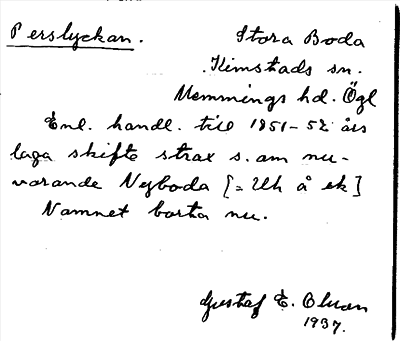 Perslyckan.
Stora Boda
Kimstads sn.
Memmings hd. Ögl
Enl. handl. till 1851-52 års
laga skifte strax s. om nu-
varande Nyboda [= Uh å ek]
Namnet borta nu.
Gustaf E. Olsson
1937.